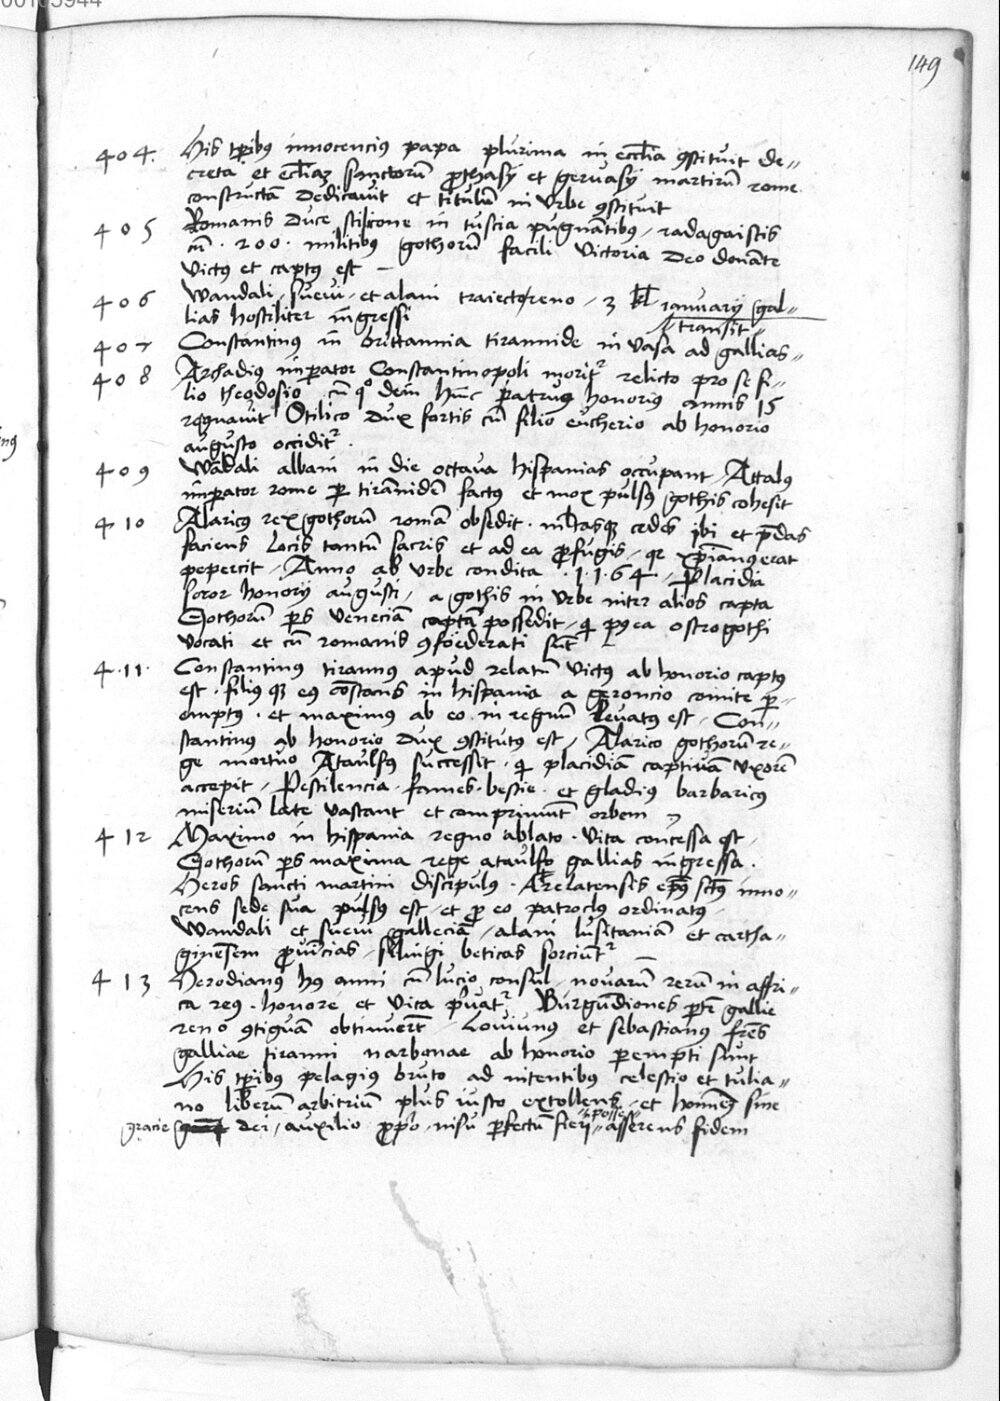 149
404. His tꝑibꝰ innocenciꝰ papa plurima in eccl̄ia ꝯstituit de„
creta et eccl̄iaꝫ sanctorū ꝓthasÿ et geruasÿ martirū rome
constructā dedicauit et titulū in vrbe ꝯstituit
405 Romanis duce stilicone in tuscia pugnātibꝰ, radagaistis
cū · 200 · militibꝰ gothorū facili victoria deo donāte
victꝰ et captꝰ est —
406 Wandali, sueui, et alani traiecto reno, 3 kl̄ ianuarÿ gal„
lias hostiliter īgressi „transit„
407 Constantinꝰ in brittannia tirannide inuasa ad gallias„
408 Archadiꝰ imꝑator Constantinopoli moritᷣ relicto pro se fi„
lio theodosio, cū qͦ dein hūc patruꝰ honoriꝰ annis 15
regnauit Stilico dux fortis cū filio eucherio ab honorio
augusto occiditᷣ.
409 Wādali albani in die octava hispanias occupant, Attalꝰ
imꝑator rome ꝑ tirānidē factꝰ et mox pulsꝰ gothis cohesit
410 Alaricꝰ rex gothorū romā obsedit · ml̄tasqꝫ cedes ibi et p̄das
faciens locis tantū sacris et ad ea ꝓfugis, qe xp̄iānꝰ erat
pepercit, Anno ab vrbe condita · 1·1·64, Placidia
soror honorÿ augusti, a gothis in vrbe inter alios capta
Gothorū ꝑs veneciā captā possedit, qi ꝑ ea ostrogothi
vocati et cū romanis ꝯfoederati sūt
4·11· Constantinꝰ tirannꝰ apud relatū victꝰ ab honorio captꝰ
est · filiꝰ qꝫ eꝰ cōstans in hispania a geroncio comite ꝑ„
emptꝰ · et maximꝰ ab eo in regnū leuatꝰ est, Con„
stantinꝰ ab honorio dux ꝯstitutꝰ est, Alarico gothorū re„
ge mortuo Ataulfꝰ successit · qi placidiā captiuā vxorē
accepit, Pestilencia, fames, bestie, et gladiꝰ barbaricꝰ
miseriū late vastant et comprimūt orbem
412 Maximo in hispania regno ablato · vita concessa est,
Gothorū ꝑs maxima rege ataulfo gallias īgressa.
Heros sancti martini discipulꝰ · Arelatensis ep̄ꝰ sc̄tꝰ inno„
cens sede sua pulsꝰ est, et ꝓ eo patroclꝰ ordinatꝰ,
Wandali et sueui galleciā, alani lusitaniā et cartha„
ginēsem ꝓuīcias, silingi beticas sorciūtᷣ
413 Herodianꝰ hꝰ anni cū lucio consul, novarū rerū in affri„
ca reꝰ · honore et vita p̄uatᷣ Burgūdiones ꝑtē gallie
reno ꝯtiguā obtinuer̄t, Iouiunꝰ et sebastianꝰ fr̄es
galliae tiranni narbonae ab honorio ꝑempti sunt
His tꝑibꝰ pelagiꝰ bruto ad nitentibꝰ celestio et iulia„
no liberū arbitriū plus iusto extollens, et hoīnes sine
gracie dei, auxilio ꝓprio nisu ꝑfectū fieri „posse„ asserens fidem